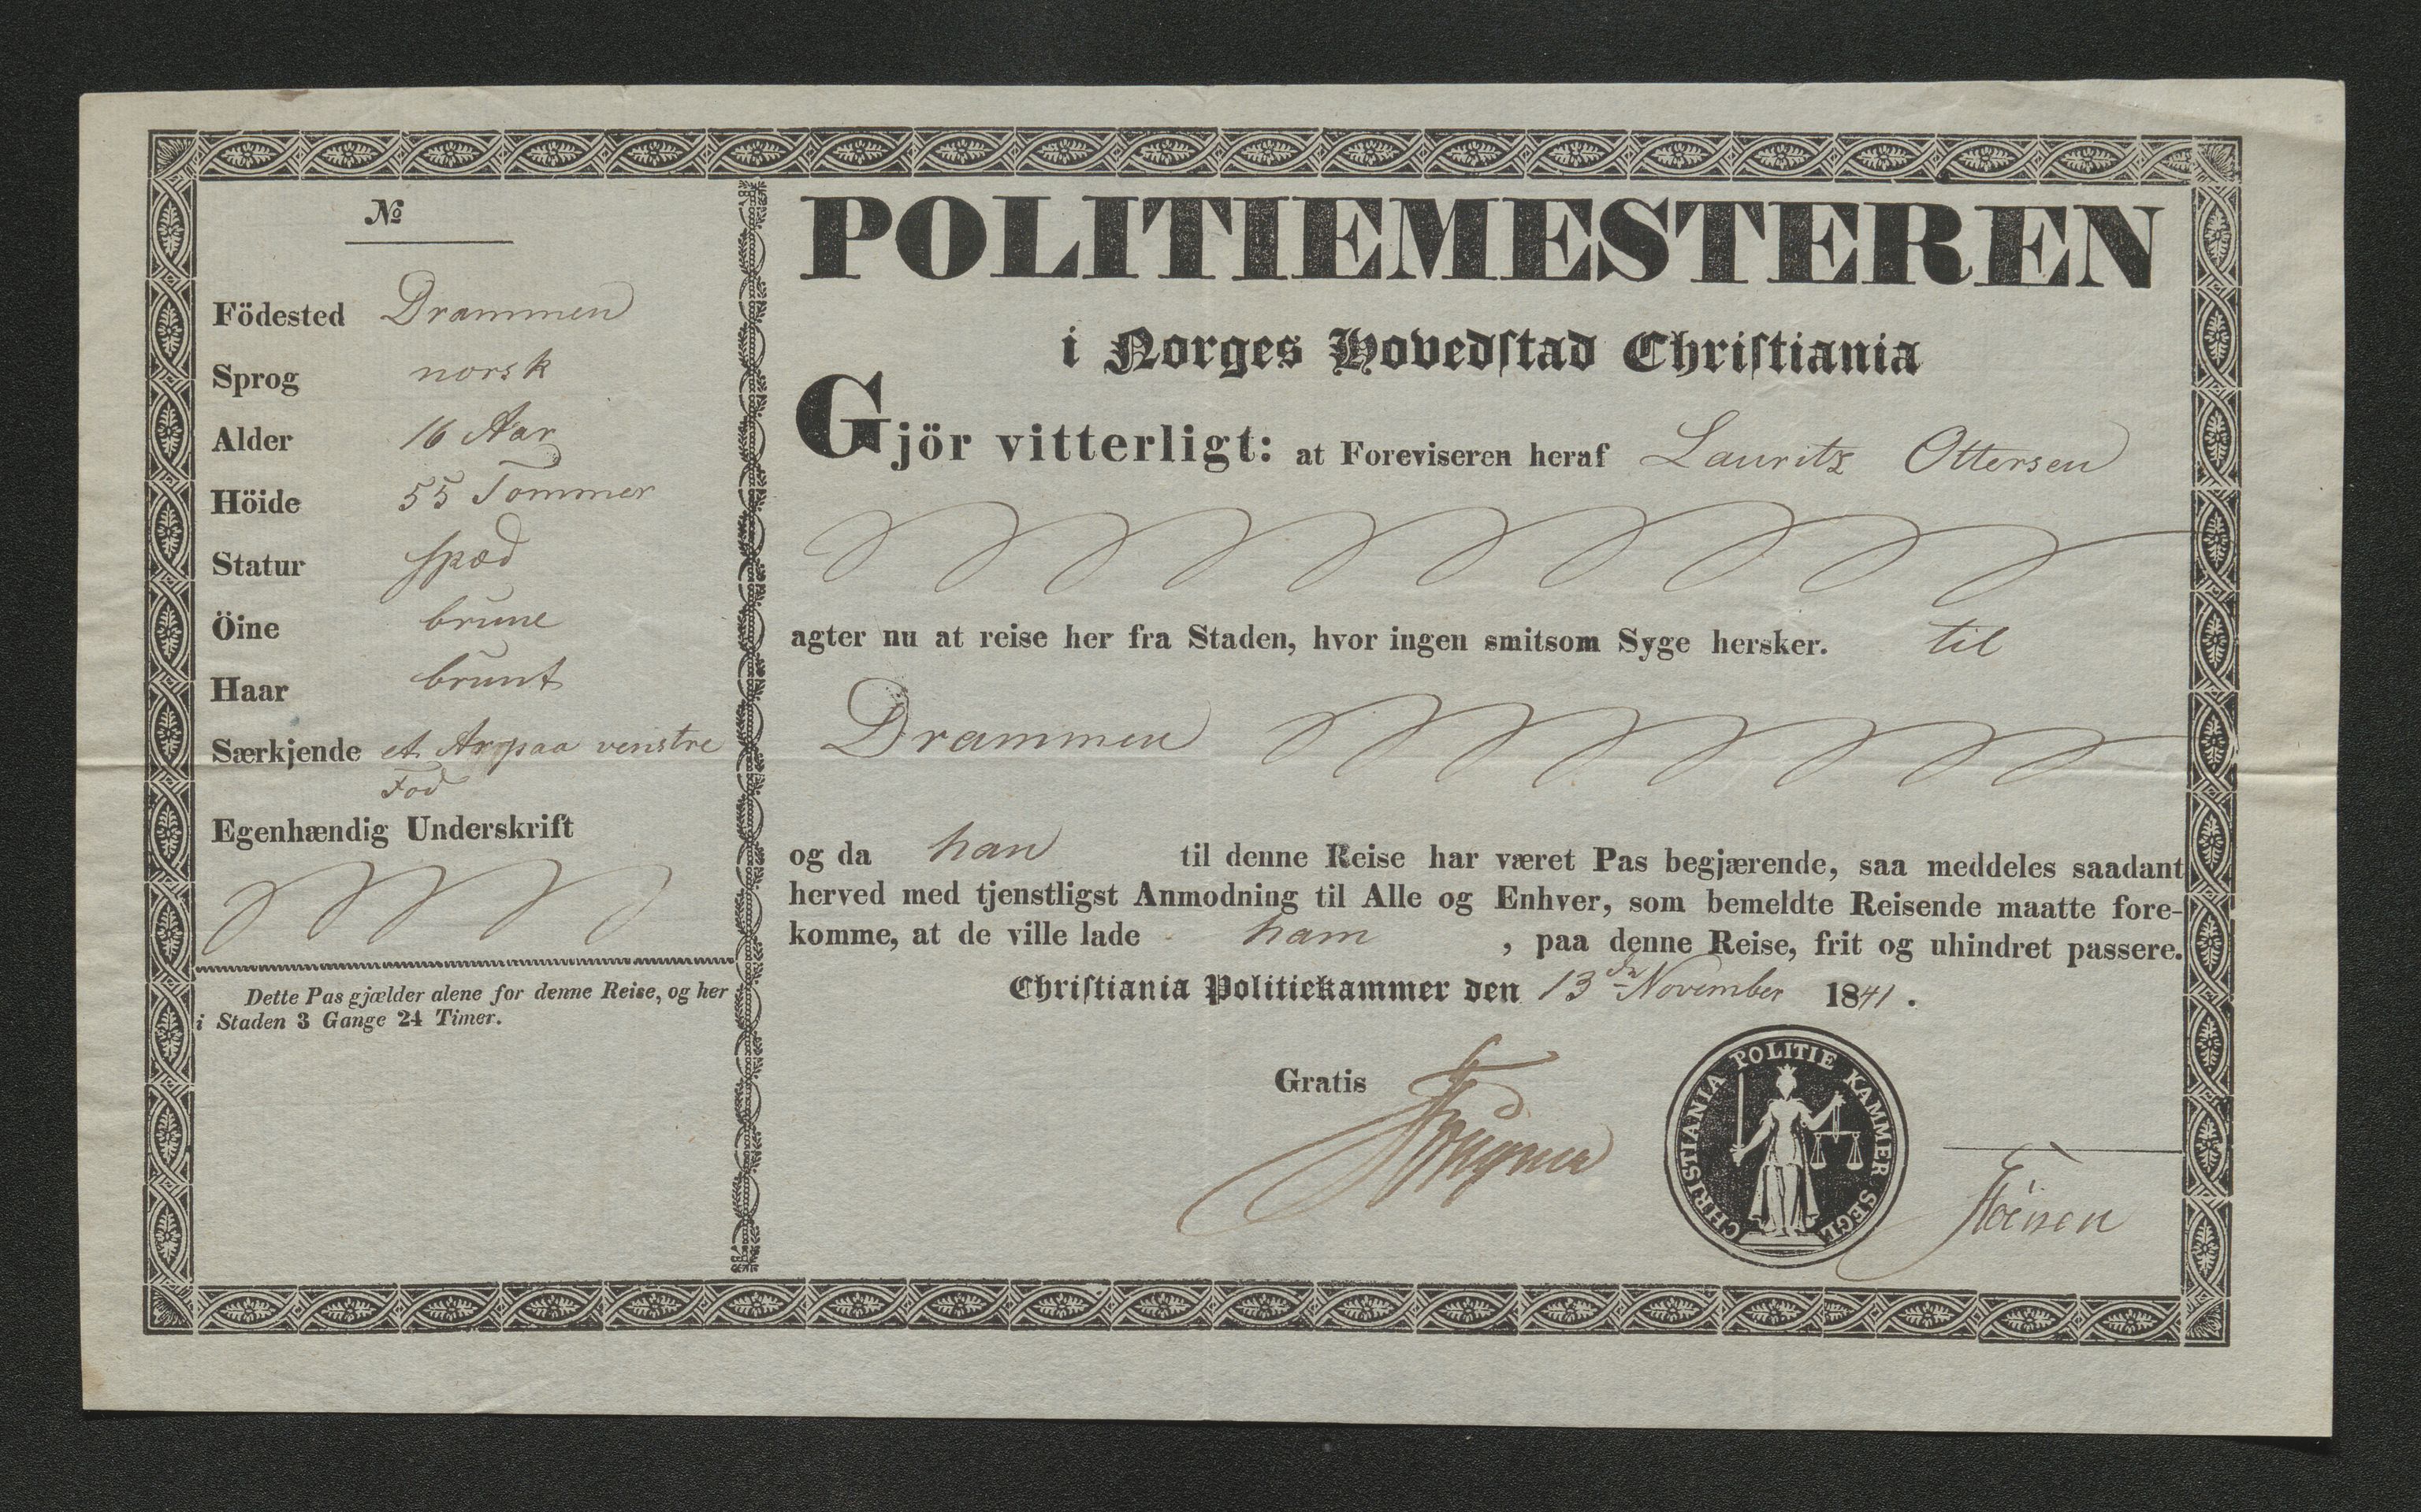 No
Födested Drammen
Sprog norsk
Alder 16 Aar
Höide 55 Tommer
Statur spæd
Öine brune
Haar brunt
Særkjende et Ar paa venstre
Fod
Egenhændig Underskrift
Dette Pas gjælder alene for denne Reise, og her
i Staden 3 Gange 24 Timer.
POLITIEMESTEREN
i Norges Hovedstad Christiania
Gjör vitterligt: at Foreviseren heraf Lauritz Ottersen
agter nu at reise her fra Staden, hvor ingen smitsom Syge hersker. til
Drammen
og da han til denne Reise har været Pas begjærende, saa meddeles saadant
herved med tjenstligst Anmodning til Alle og Enhver, som bemeldte Reisende maatte fore-
komme, at de ville lade ham, paa denne Reise, frit og uhindret passere.
Christiania Politiekammer den 13de November 1841.
Gratis
CHRISTIANIA POLITIE KAMMER SEGL